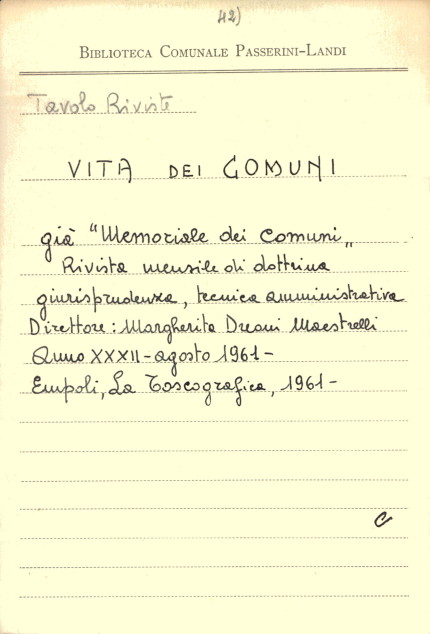 42)
BIBLIOTECA COMUNALE PASSERINI-LANDI
Tavolo Riviste
VITA DEI COMUNI
già "Memoriale dei Comuni"
Rivista mensile di dottrina
giurisprudenza, tecnica amministrativa
Direttore: Margherita Dreoni Maestrelli
Anno XXXII - agosto 1961 -
Empoli, La Toscografica, 1961 -
C